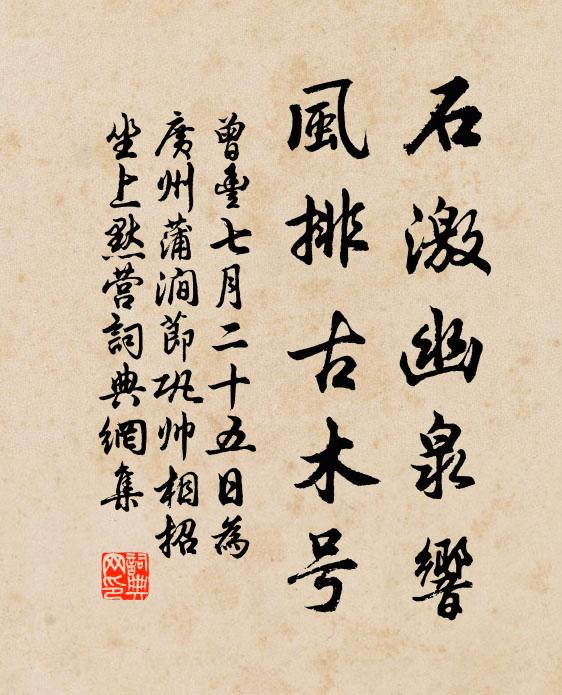 石激幽泉響
風排古木号
曾豐七月二十五日為
廣州蒲澗節巩帅相招
坐上默营詞典網集
詞典
网印